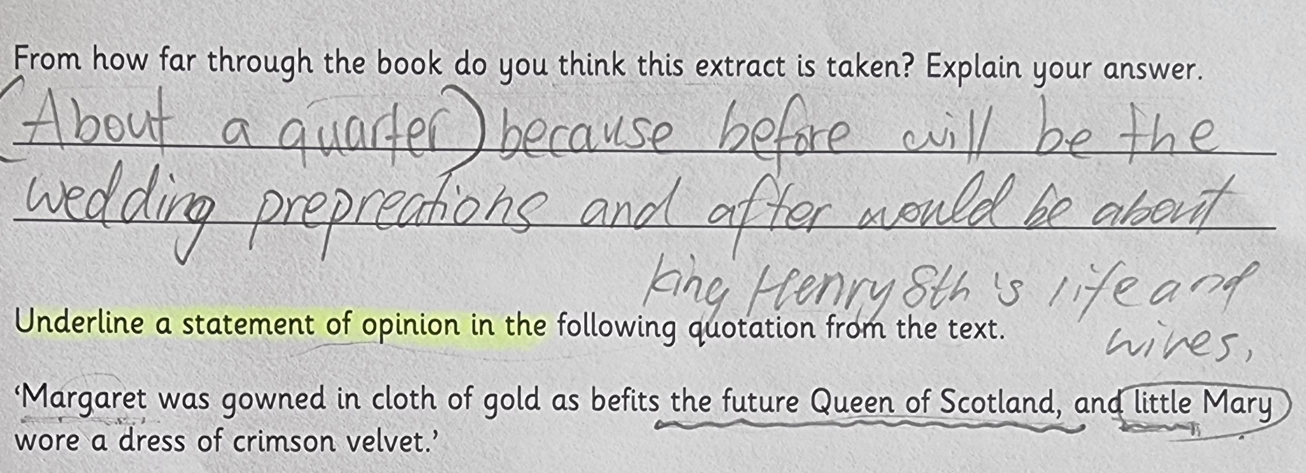 From how far through the book do you think this extract is taken? Explain your answer.
(About a quarter) because before will be the
wedding prepreations and after would be about
king Henry 8th's life and
wives.
Underline a statement of opinion in the following quotation from the text.
‘Margaret was gowned in cloth of gold as befits the future Queen of Scotland, and little Mary
wore a dress of crimson velvet.’